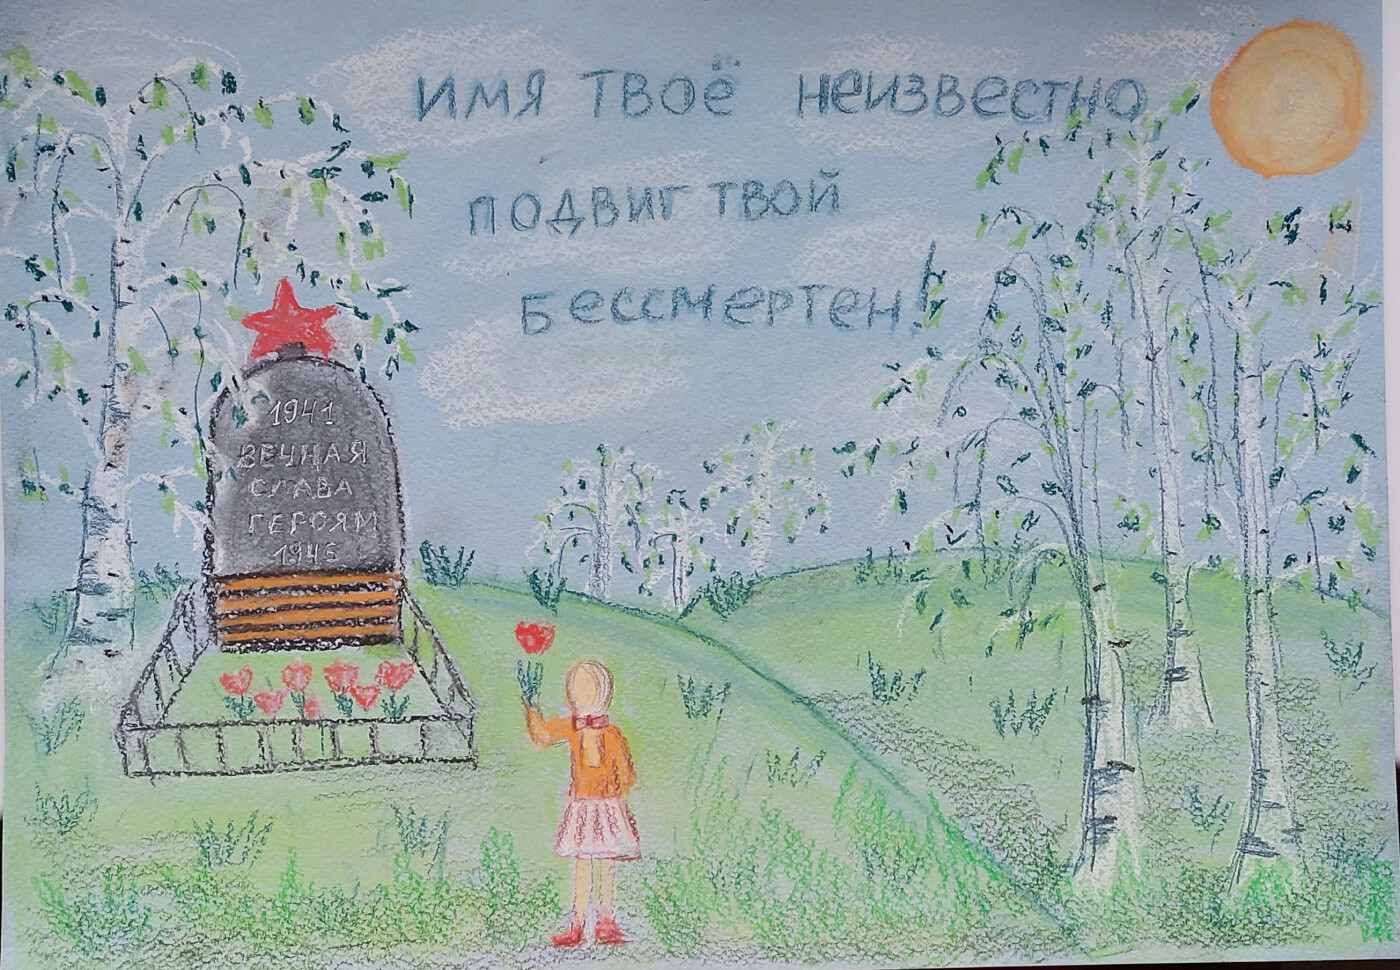 ИМЯ ТВОЁ НЕИЗВЕСТНО
ПОДВИГ ТВОЙ
БЕССМЕРТЕН!
1941
ВЕЧНАЯ
СЛАВА
ГЕРОЯМ
1945